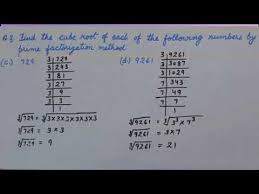 Q.3 Find the cube root of each of the following numbers by
prime factorization method
(c.) 729
3 729
3 243
3 81
3 27
3 9
3 3
1
∛729 = ∛3×3×3×3×3×3
∛729 = 3×3
∛729 = 9
(d) 9261
3 9261
3 3087
3 1029
7 343
7 49
7 7
1
∛9261 = ∛3³×7³
∛9261 = 3×7
∛9261 = 21